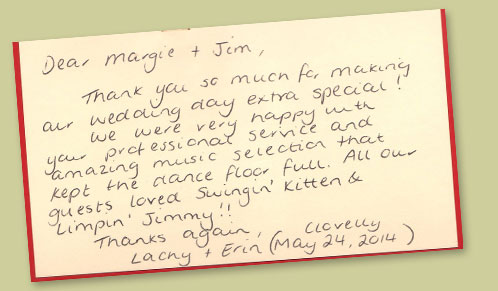 Dear Margie + Jim,
Thank you so much for making
our wedding day extra special!
We were very happy with
your professional service and
amazing music selection that
kept the dance floor full. All our
guests loved Swingin' Kitten &
Limpin' Jimmy!!
Thanks again, Clovelly
Lachy + Erin (May 24, 2014)